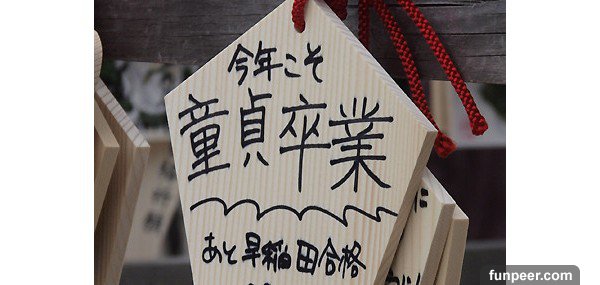 今年こそ
童貞卒業
あと早稲田合格
に
funpeer.com